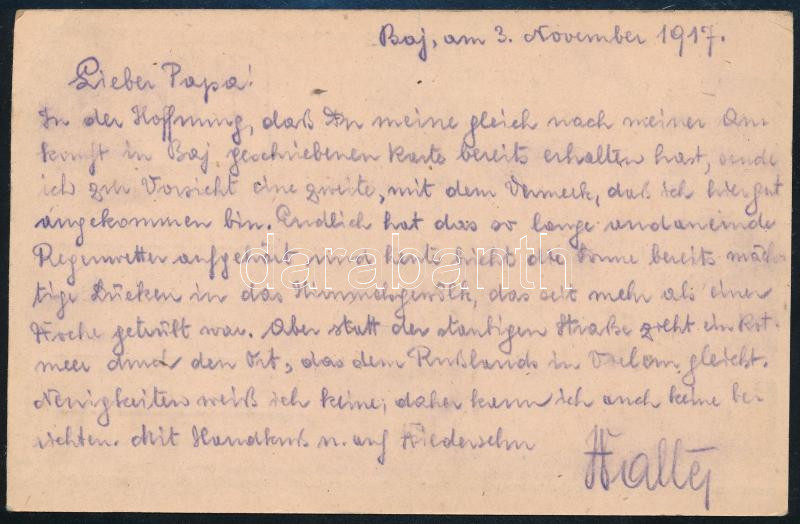 Baj, am 3. November 1917.
Lieber Papa!
In der Hoffnung, daß Du meine gleich nach meiner An-
kunft in Baj geschriebenen Karte bereits erhalten hast, sende
ich zur Vorsicht eine zweite, mit dem Vermerk, daß ich hier gut
angekommen bin. Endlich hat das so lange andauernde
Regenwetter aufgehört und heute die Sonne bereits mäch-
tige Lücken in das Himmelsgewölk, das seit mehr als einer
Woche getrübt war. Aber statt der staubigen Straße zieht ein Kot-
meer durch den Ort, das dem Rußlands in gleicht.
Neuigkeiten weiß ich keine; daher kann ich auch keine be-
richten. Mit Handkuß u. auf Wiedersehn
Walter
darabanth